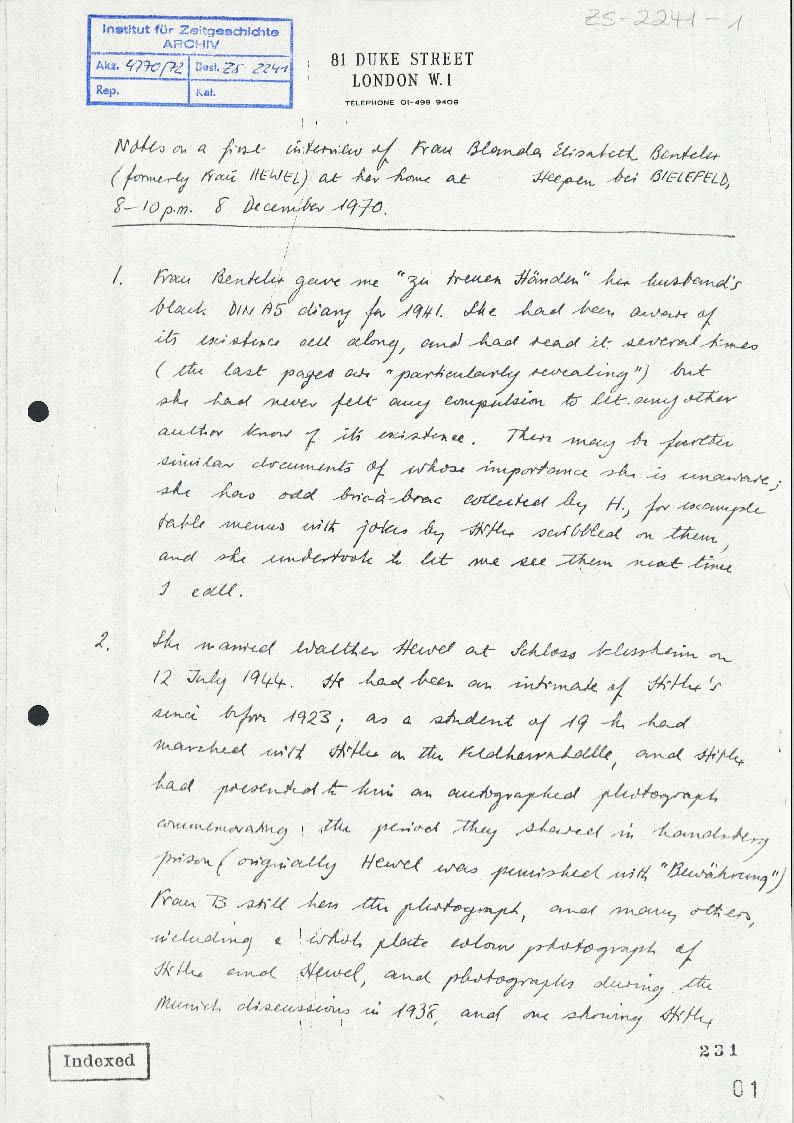 ZS-2241-1
Institut für Zeitgeschichte
ARCHIV
Akz. 4770/72 Best. ZS 2241
Rep. Kat.
81 DUKE STREET
LONDON W.1
TELEPHONE 01-499 9409
Notes on a first interview of Frau Blanda Elisabeth Benteler
(formerly Frau HEWEL) at her home at Heepen bei BIELEFELD,
8–10 p.m. 8 December 1970.
1. Frau Benteler gave me "zu treuen Händen" her husband's
black DIN A5 diary for 1941. She had been aware of
its existence all along, and had read it several times
(the last pages are "particularly revealing") but
she had never felt any compulsion to let any other
author know of its existence. There may be further
similar documents of whose importance she is unaware;
she has odd bric-à-brac collected by H., for example
table menus with jokes by Hitler scribbled on them,
and she undertook to let me see them next time
I call.
2. She married Walther Hewel at Schloss Klessheim on
12 July 1944. He had been an intimate of Hitler's
since before 1923; as a student of 19 he had
marched with Hitler on the Feldherrnhalle, and Hitler
had presented to him an autographed photograph
commemorating the period they shared in Landsberg
prison (originally Hewel was punished with "Bewährung")
Frau B still has the photograph, and many others,
including a whole plate colour photograph of
Hitler and Hewel, and photographs during the
Munich discussions in 1938, and one showing Hitler
Indexed
231
01